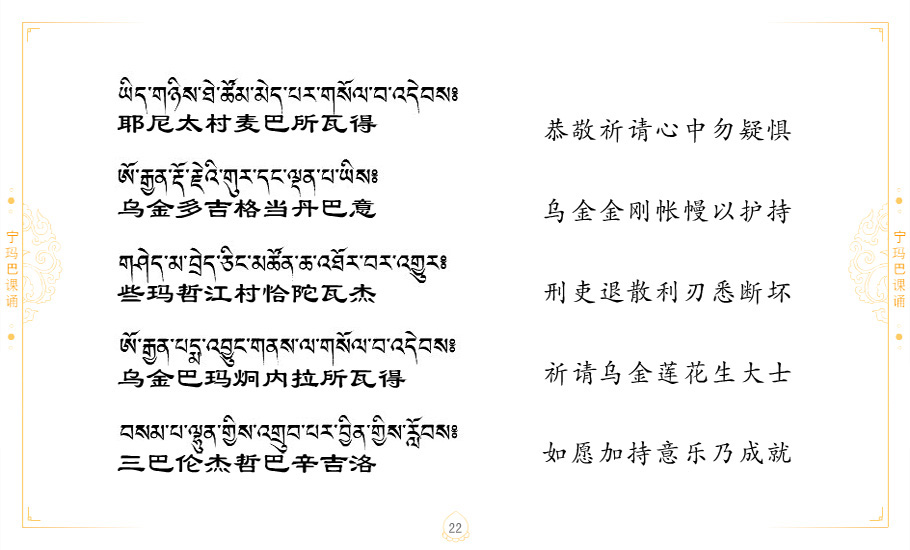 ཡིད་གཉིས་ཐེ་ཚོམ་མེད་པར་གསོལ་བ་འདེབས༔
耶尼太村麦巴所瓦得
恭敬祈请心中勿疑惧
ཨོ་རྒྱན་རྡོ་རྗེའི་གུར་དང་ལྡན་པ་ཡིས༔
乌金多吉格当丹巴意
乌金金刚帐幔以护持
གཤེད་མ་བྲེད་ཅིང་མཚོན་ཆ་འཐོར་བར་འགྱུར༔
些玛哲江村恰陀瓦杰
刑吏退散利刃悉断坏
ཨོ་རྒྱན་པདྨ་འབྱུང་གནས་ལ་གསོལ་བ་འདེབས༔
乌金巴玛炯内拉所瓦得
祈请乌金莲花生大士
བསམ་པ་ལྷུན་གྱིས་འགྲུབ་པར་བྱིན་གྱིས་རློབས༔
三巴伦杰哲巴辛吉洛
如愿加持意乐乃成就
宁玛巴课诵
宁玛巴课诵
22